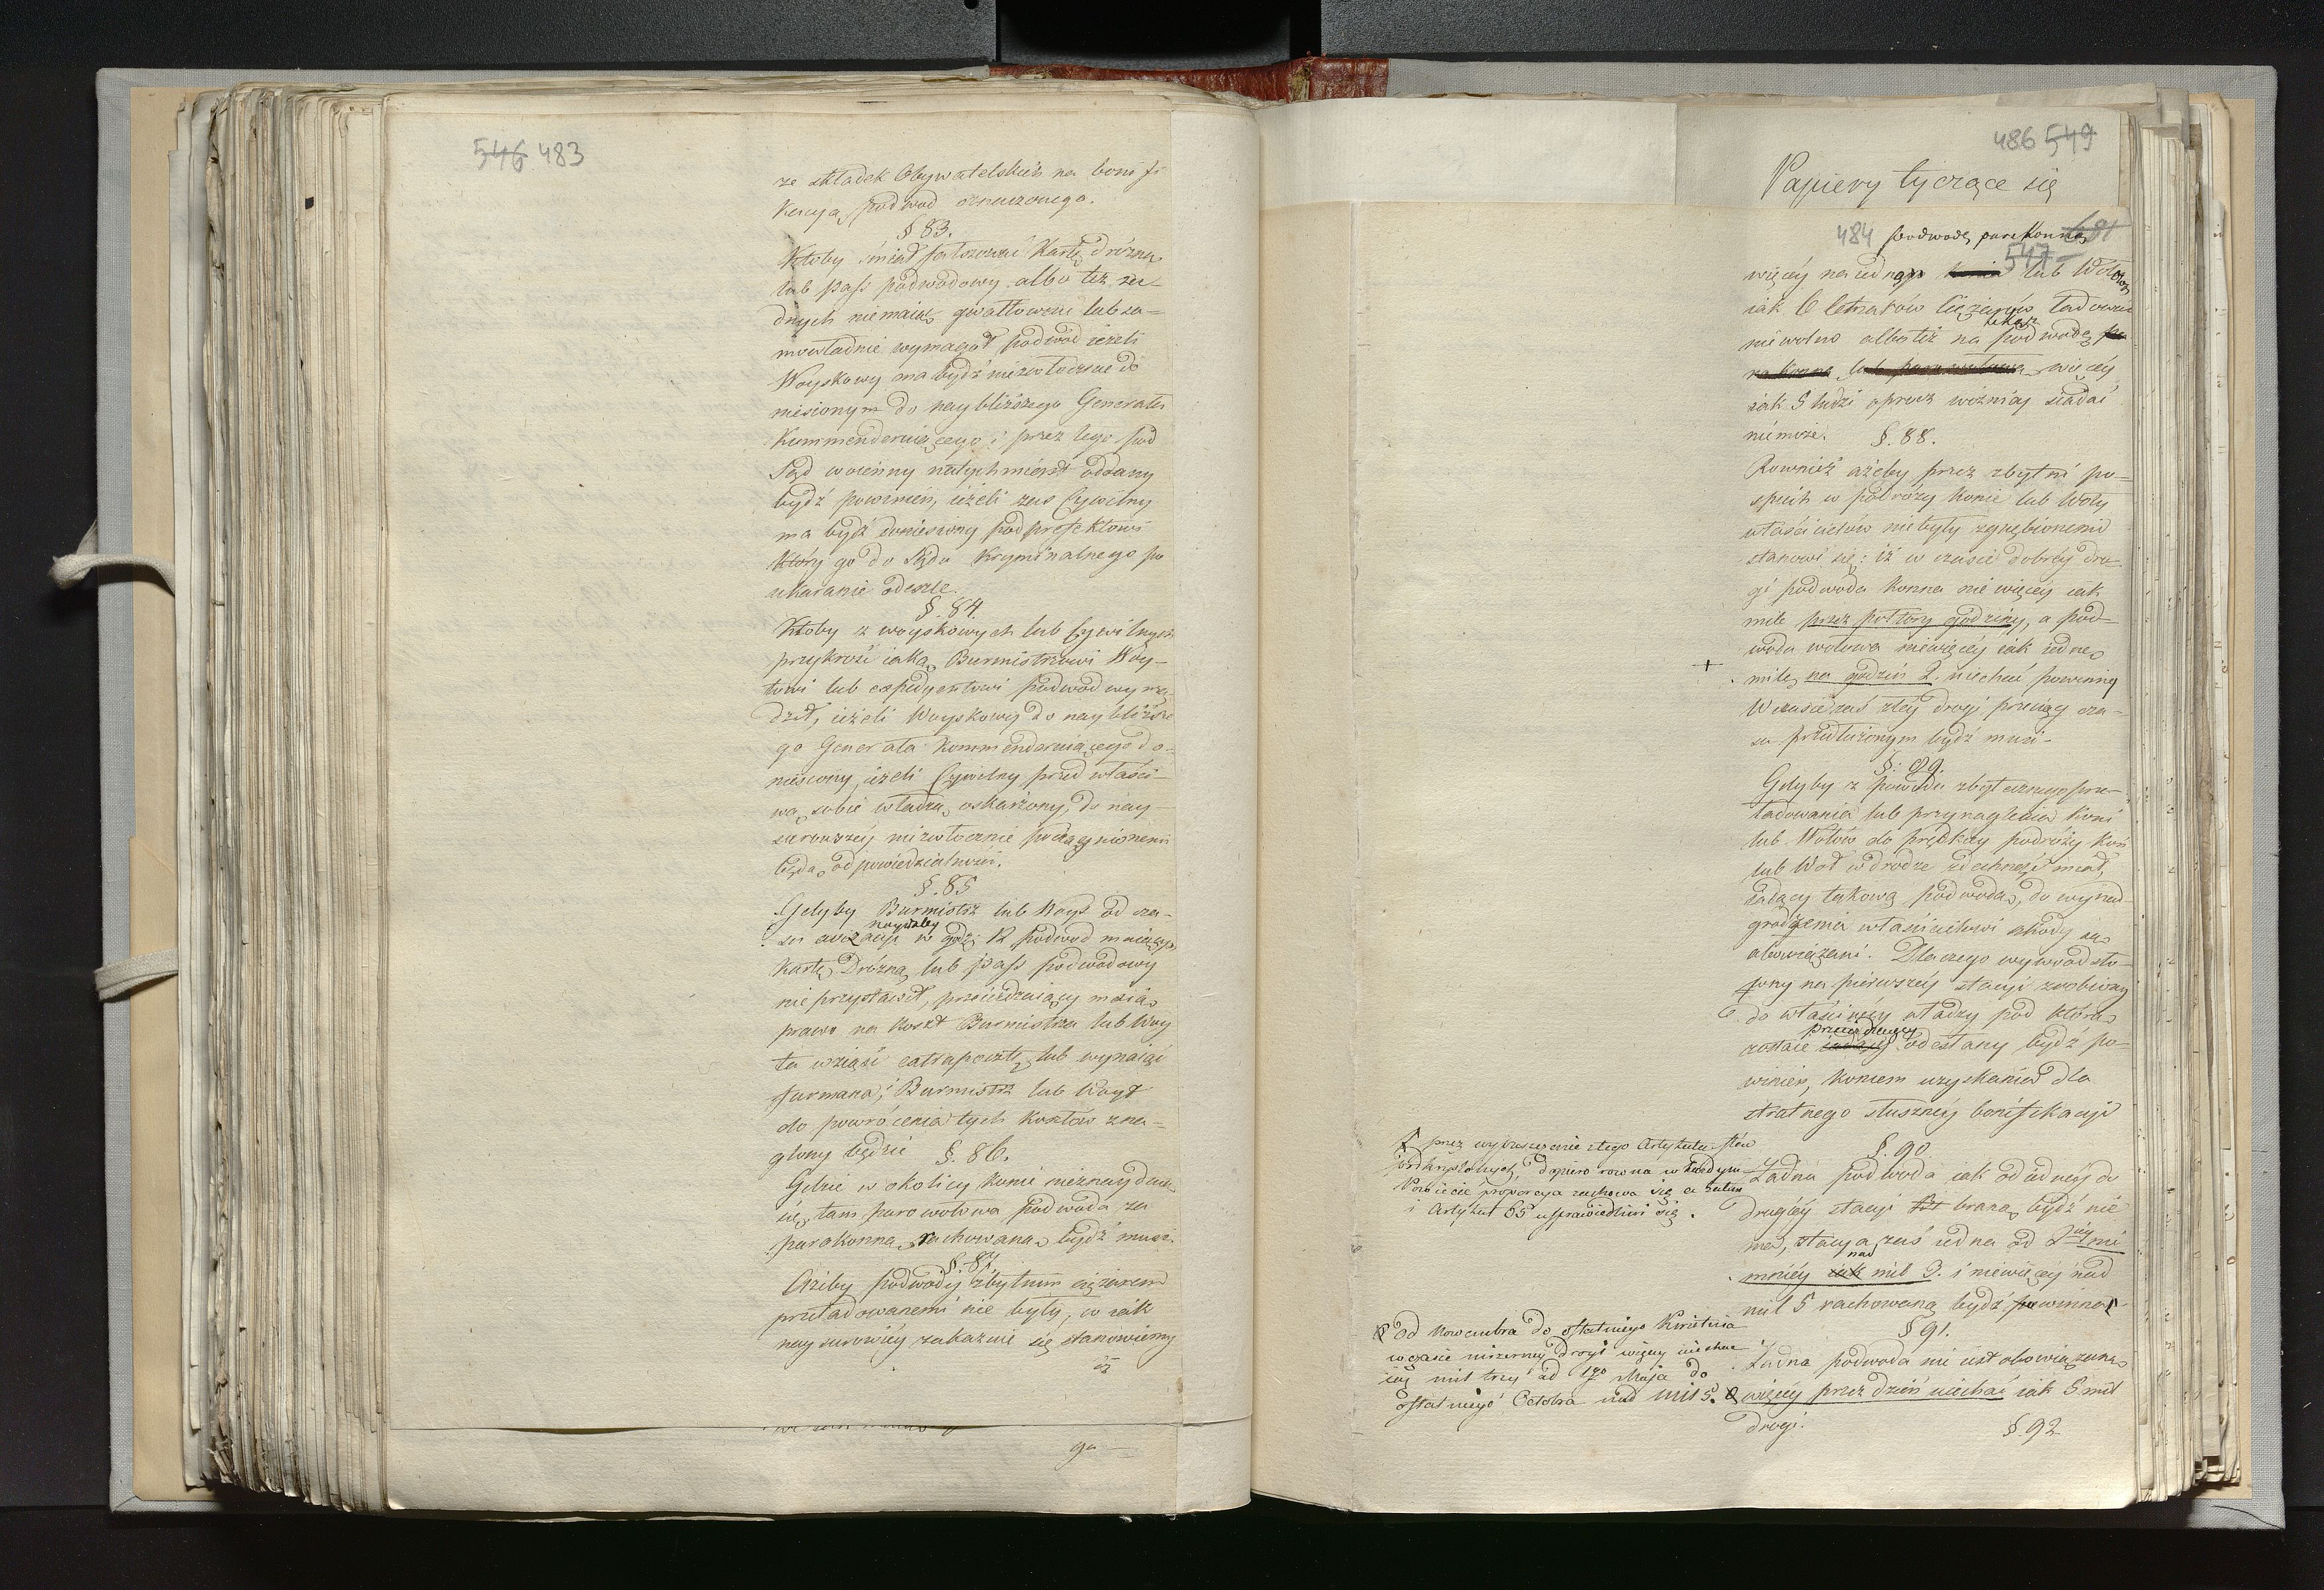 546 483
ze składek Obywatelskich na bonifi
kacyą podwod oznaczonego.
§ 83.
Ktoby śmiał fałszować Kartę drożną
lub pass podwodowy albo też ża-
dnych niemaiąc gwałtownie lub sa-
mowładnie wymagał podwod ieżeli
Woyskowy ma bydź niezwłocznie do
niesionym do naybliższego Generała
Kommenderuiącego i przez tego pod
Sąd woienny natychmiast oddany
bydź powinien, ieżeli zaś Cywilny
ma bydź doniesiony podprefektowi
Który go do Sądu Kryminalnego po
ukaranie odeszle.
§. 84.
Ktoby z woyskowych lub Cywilnych
przykrość iaką Burmistrzowi Woy-
towi lub expedyentowi podwod wyrzą
dził, ieżeli Woyskowy do naybliższe
go Generała Kommenderuiącego do-
niesiony, ieżeli Cywilny przed właści-
wą sobie władzą oskarżony, do nay-
surowszey niezwłocznie pociągnionemi
będą odpowiedzialności.
§. 85
Gdyby Burmistrz lub Woyt od cza-
naydaley
su awizacyi w godz: 12 podwod maiącego
Kartę Drożną lub pass podwodowy
nie przystawił, przeieżdzaiący maią
prawo na koszt Burmistrza lub Woy
ta wziąść extrapocztę lub wynaiąć
furmana, i Burmistrz lub Woyt
do powrócenia tych kosztów zna-
glony będzie §. 86.
Gdzie w okolicy konie nieznayduią
się, tam parowołowa podwoda za
parokonną rachowaną bydź musi.
§. 87.
Ażeby podwody zbytnim ciężarem
przeładowanemi nie były, w iak
naysurowiey zakazuie się stanowiemy
iż
ga —
486 549
Papiery tyczące się
484 podwodę parokonną 681
547
więcey na iedną konia lub Wołową
iak 6 letnarów ciężarów ładować
takąż
niewolno albo też na podwodę pa
rokonną lub parowołową więcey
iak 5 ludzi oprucz woźnicy siadać
niemoże. §. 88.
Rownież ażeby przez zbytni po-
spiech w podróży konie lub Woły
właścicielów niebyły zgnębionemi
stanowi się: iż w czasie dobrey dro-
gi podwoda konna nie więcey iak
milę przez półtory godziny, a pod-
woda wołowa niewięcey iak iedną
+
milę na godzin 2. uiechać powinną
W czasie zaś złey drogi przeciąg cza-
su przedłużonym bydź musi-
§. 89.
Gdyby z powodu zbytecznego prze-
ładowania lub przynaglenia koni
lub Wołów do prędkiey podróży koń
lub Woł w drodze zdechnąć miał,
iadący takową podwodą, do wynad-
grodzenia właścicielowi szkody są
obowiązani. Dlaczego wywod sto-
sowny na pierwszey stacyi zrobiony
do właściwey władzy pod którą
przeieżdżaiący
zostaie iadący odesłany bydź po-
winien, końcem uzyskania dla
stratnego słuszney bonifikacyi
§. 90.
Żadna podwoda iak od iedney do
drugiey stacyi brana bydź nie
ma, stacya zaś iedna od 2giey ni
nad
mniey iak mil 3. i niewięcey nad
mil 5 rachowaną bydź powinna
§ 91.
Żadna podwoda nie iest obowiązana
więcey przez dzień uiechać iak 5 mil
drogi.
§. 92
przez wypuszczenie z tego Artykułu słów
podkryślonych, dopiero rowna w każdym
Powiecie proporcya zachowa się a zatem
i Artykuł 65 usprawiedliwi się.
od Nowembra do ostatniego Kwietnia
w czasie mizerney drogi więcey uiechać
iak mil trzy od 1go Maja do
ostatniego Octobra nad mil 5.